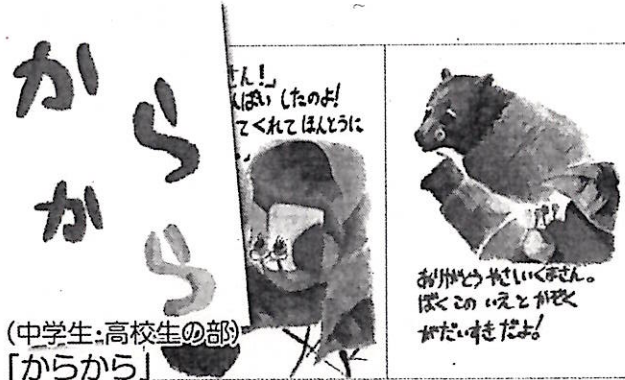 から
から
(中学生・高校生の部)
「からから」
さん!」
んぱい したのよ!
てくれて ほんとうに
ありがとう やさしいくまさん。
ぼく この いえ と かぞく
が だいすき だよ!